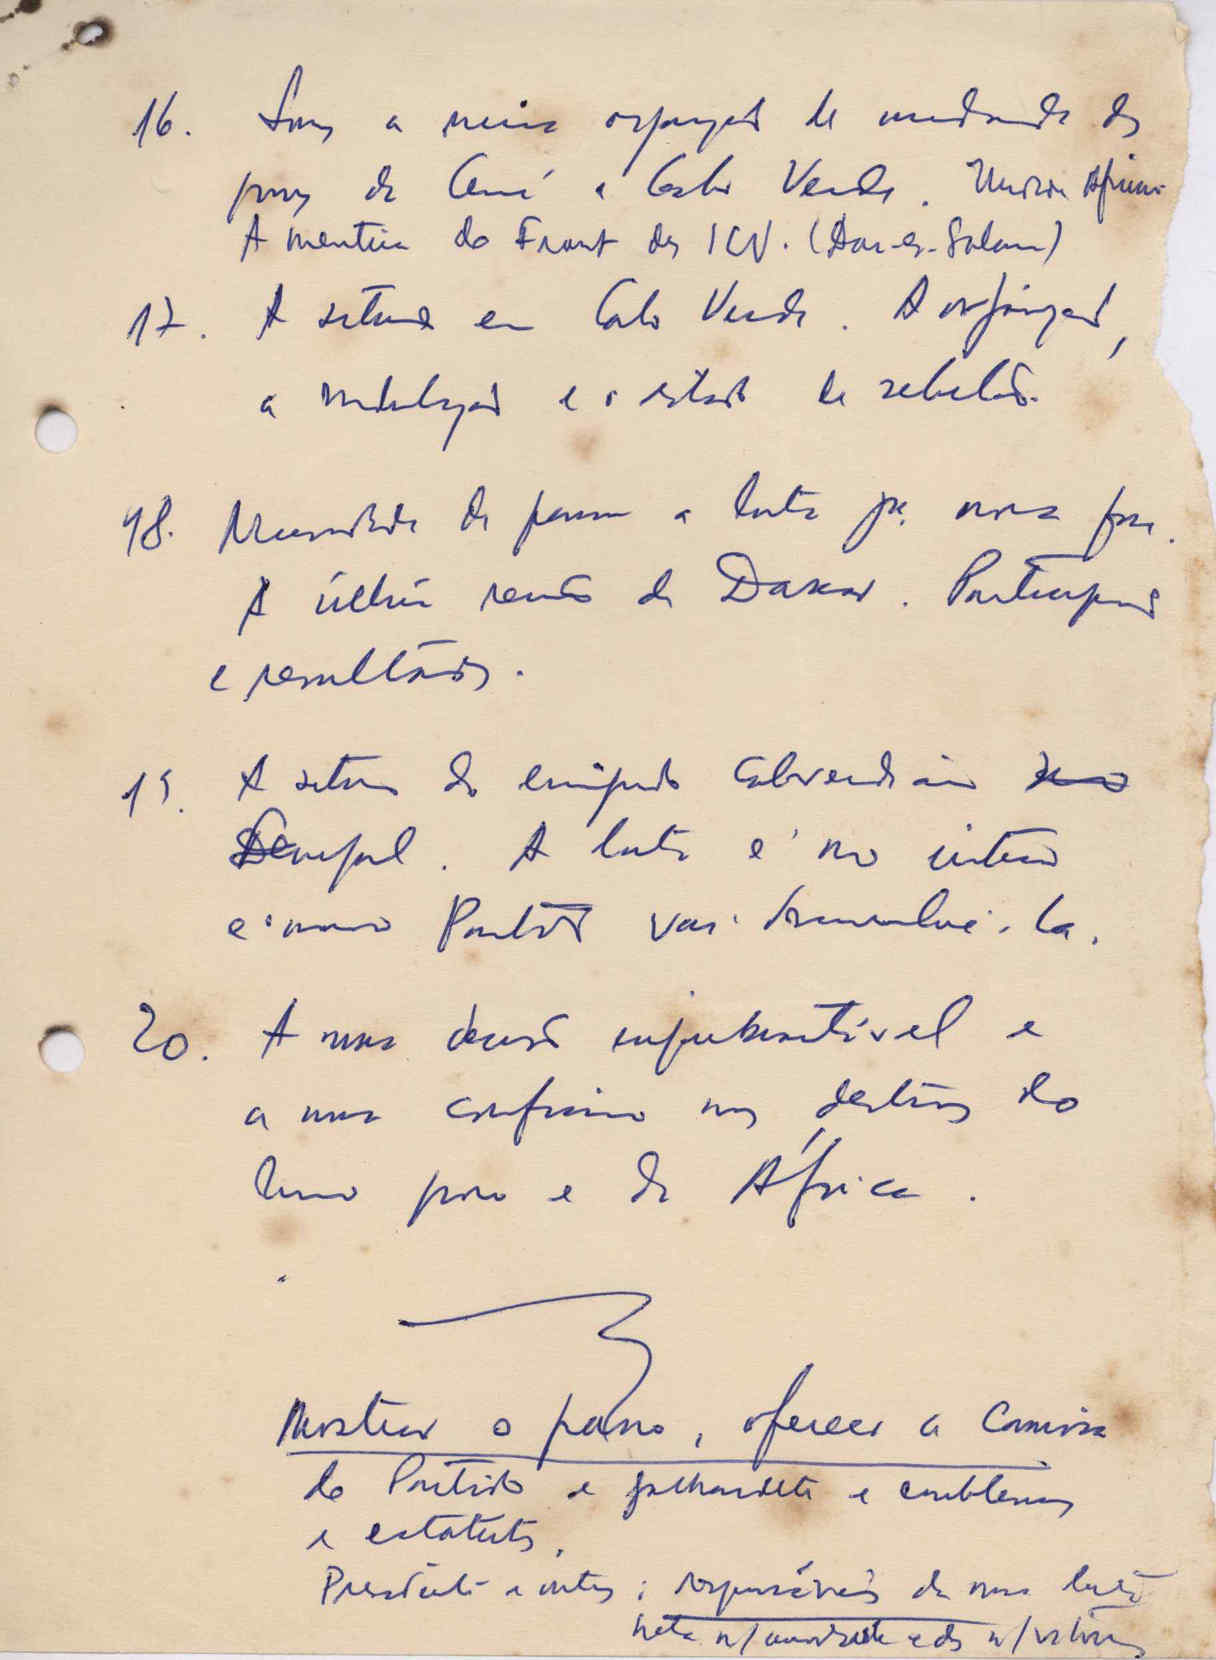 16. Somos a única organização de unidade dos
povos da Guiné e Cabo Verde. Unidade Africana
A mentira do Front das ICV. (Dar-es-Salam)
17. A situação em Cabo Verde. A organização,
a mobilização e o estado de rebelião.
18. Necessidade de passar a luta p.ª nova fase.
A última reunião de Dakar. Participação
e resultados.
19. A situação do emigrado caboverdiano no
Senegal. A luta é no interior
e o nosso Partido vai desenvolvê-la.
20. A nossa decisão inquebrantável e
a nossa confiança nos destinos do
nosso povo e da África.
Mostrar o pano, oferecer a camisa
do Partido e galhardete e emblemas
e estatutos.
Presidente e outros; responsáveis da nossa